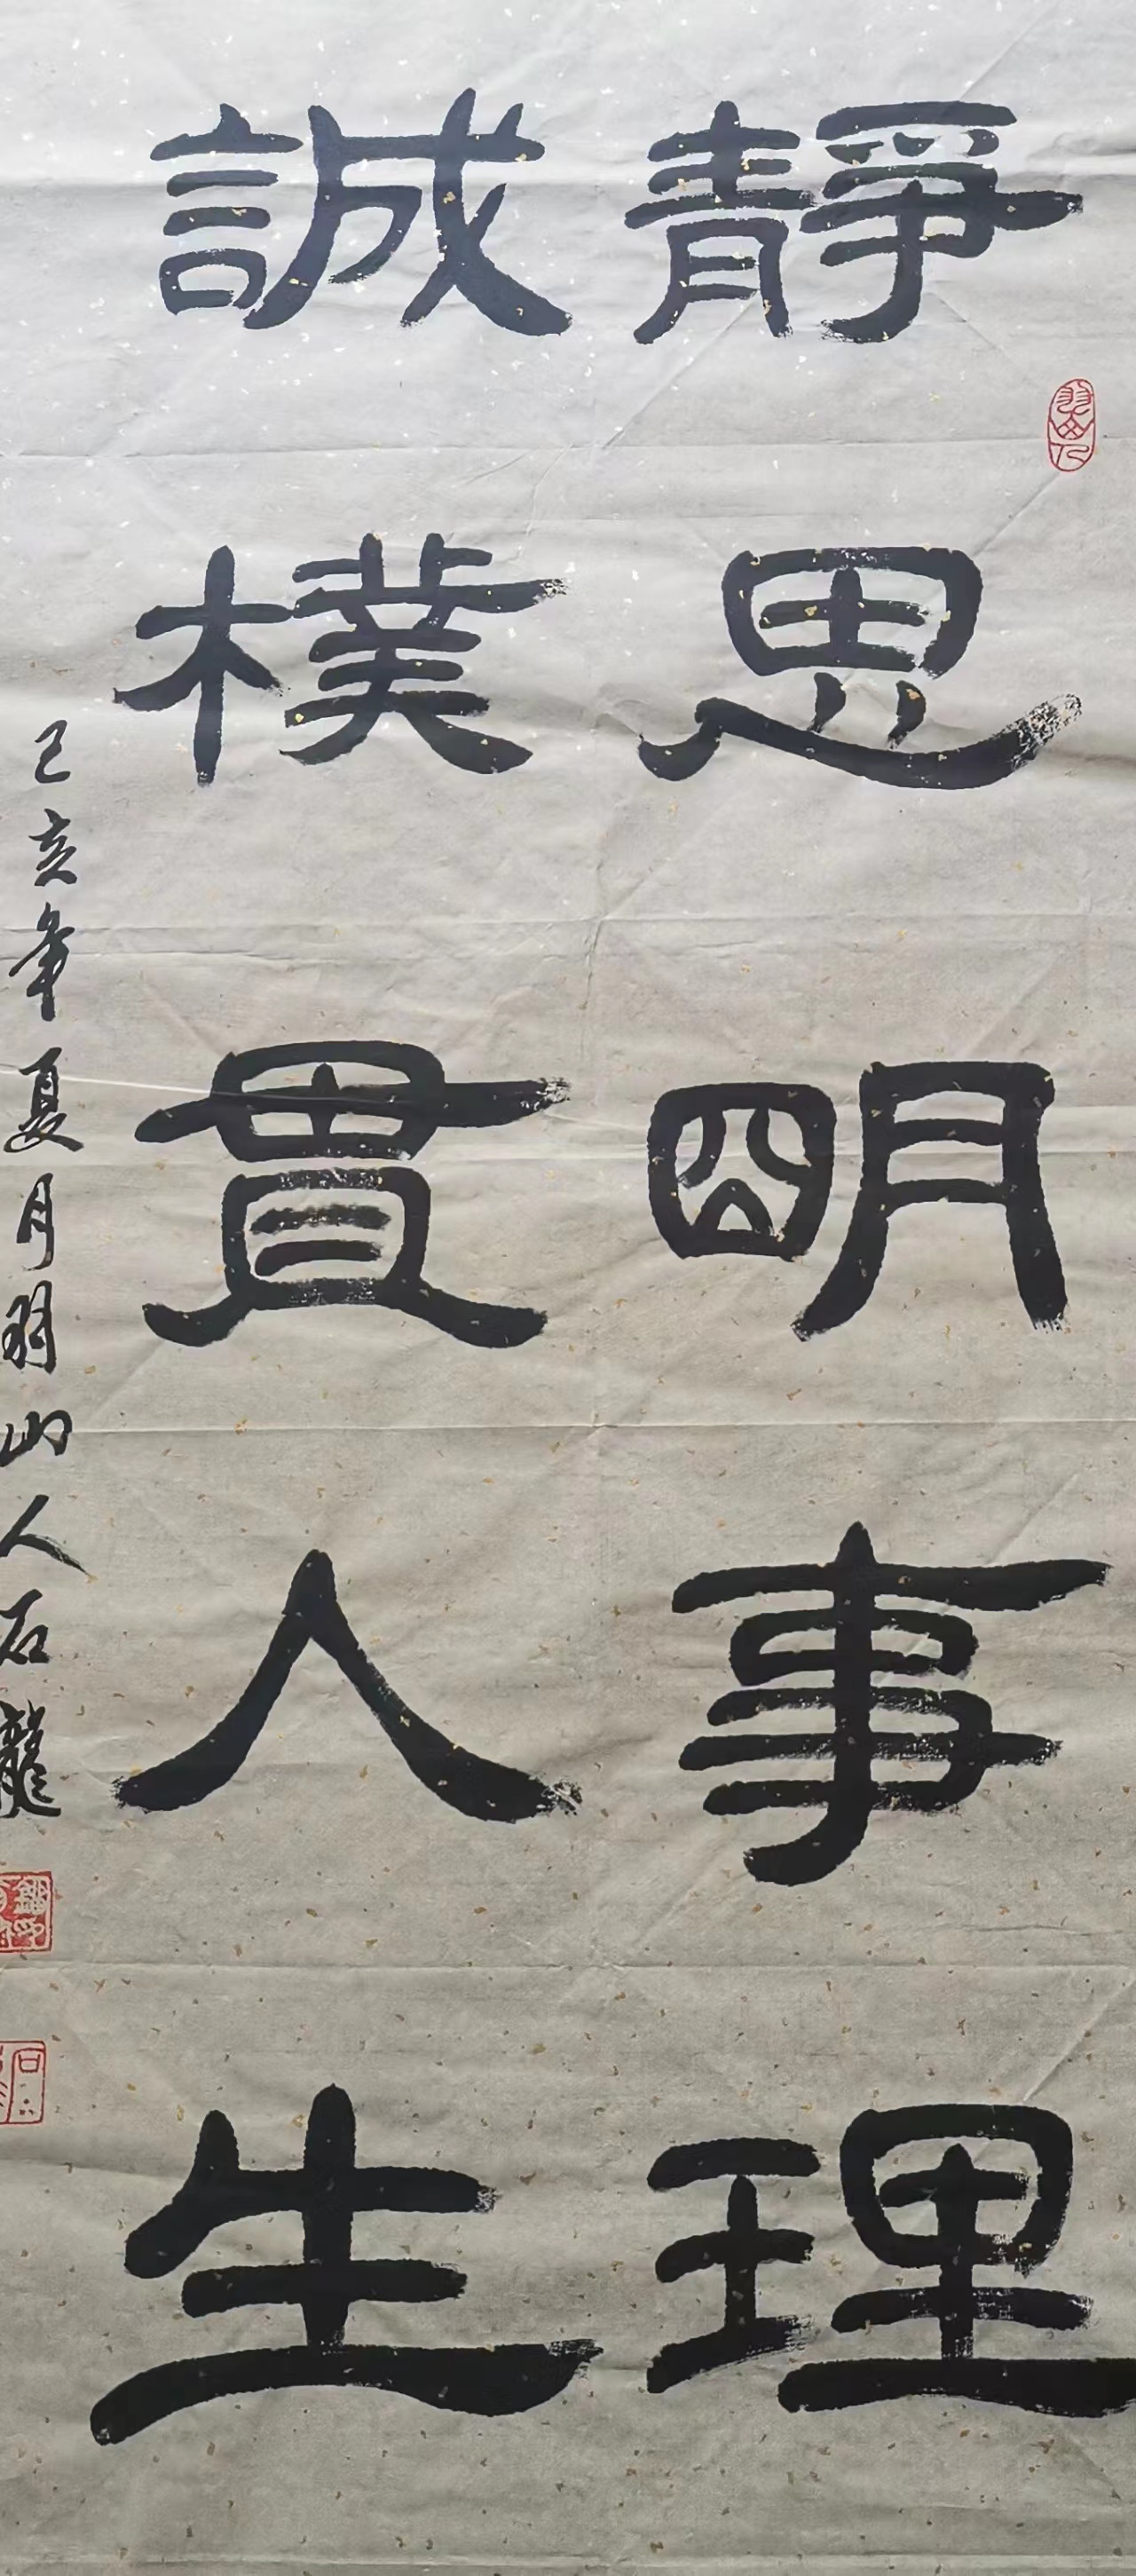 靜思明事理
誠樸貫人生
己亥年夏月羽山人石龍